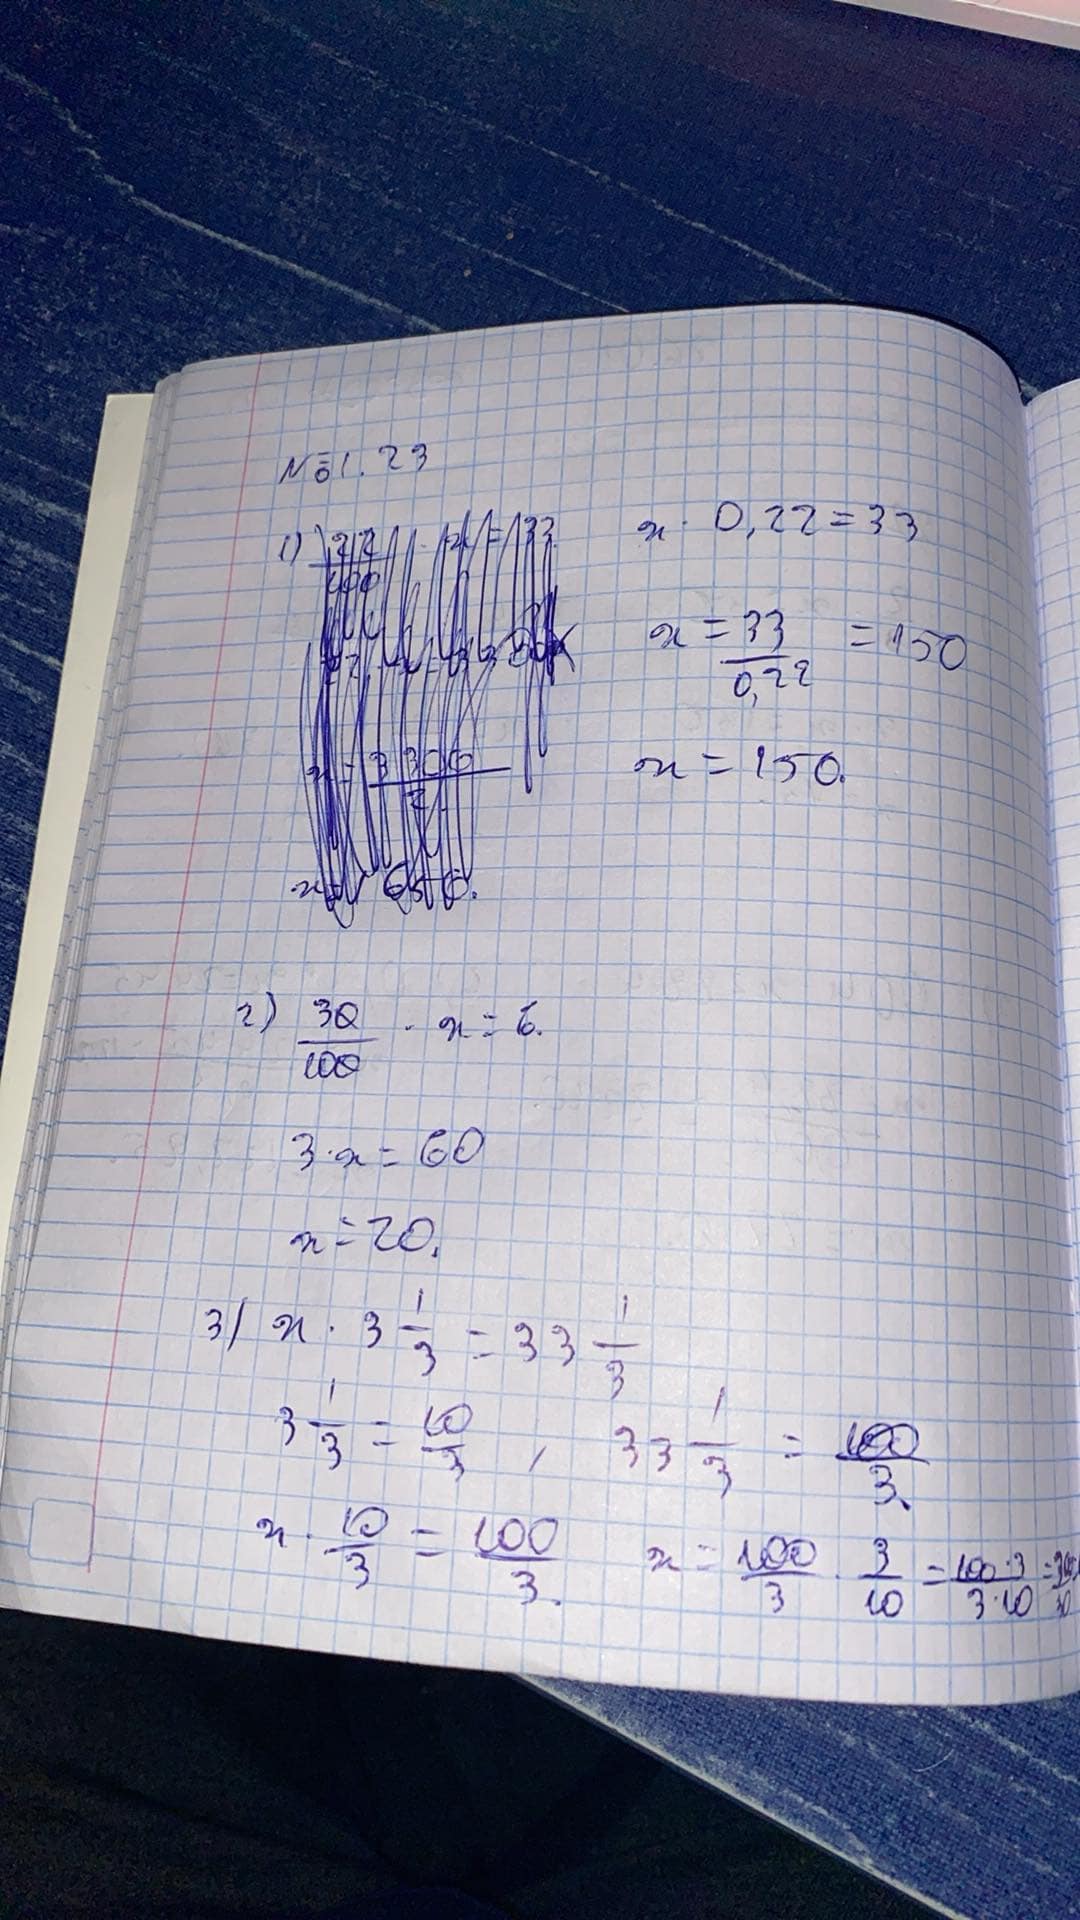 №1.23
1)
x · 0,22 = 33
x = 33/0,22 = 150
x = 150.
2) 30/100 · x = 6.
3 · x = 60
x = 20.
3) x · 3 1/3 = 33 1/3
3 1/3 = 10/3 , 33 1/3 = 100/3.
x · 10/3 = 100/3. x = 100/3 · 3/10 = 100·3/3·10 =